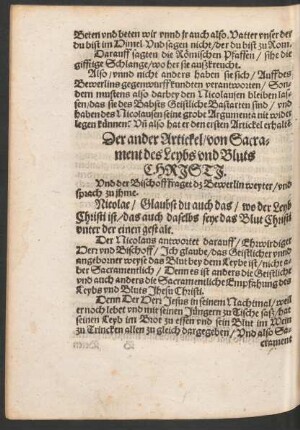 Beten vnd beten wir vnnd jr auch also. Vatter vnser der
du bist im Himel Vnd sagen nicht/der du bist zu Rom.
Darauff sagten die Römischen Pfaffen / siht die
gifftige Schlange/wo her sie außkreucht.
Also/vnnd nicht anders haben sie sich / Auff des
Bewerlins gegenwürff kunden verantworten / Son-
dern mustens also darbey den Nicolausen bleiben las-
sen/das sie des Babsts Geistliche Bastarten sind / vnd
haben des Nicolausen seine grobe Argumenta nie wider
legen künnen. Vñ also hat er den ersten Artickel erhaltẽ.
Der ander Artickel/von Sacra-
ment des Leybs vnd Bluts
CHRISTI.
Vnd der Bischoff fraget dz Bewerlin weyter/vnd
sprach zu jhme.
Nicolae / Glaubst du auch das / wo der Leyb
Christi ist/das auch daselbs seye das Blut Christi
vnter der einen gestalt.
Der Nicolaus antwortet darauff/ Ehrwirdiger
Herr vnd Bischoff / Ich glaube/das Geistlicher vnnd
angeborner weyse das Blut bey dem Leybe ist/nicht a-
ber Sacramentlich / Denn es ist anders die Geistliche
vnd auch anders die Sacramentliche Empfahung des
Leybs vnd Bluts Jhesu Christi.
Denn Der Herr Jesus in seinem Nachtmal/weil
er noch lebet vnd mit seinen Jüngern zu Tische saß/hat
seinen Leyb im Brot zu essen vnd sein Blut im Wein
zu Trincken allen zu gleich dargegeben/Vnd also Sa-
crament